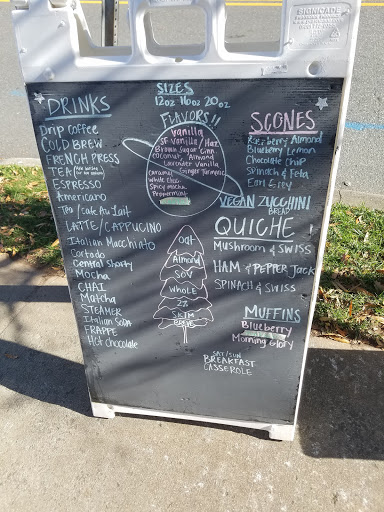 SIGNICADE
SIZES
12oz 16oz 20oz
DRINKS
Drip coffee
COLD BREW
FRENCH PRESS
TEA
ESPRESSO
Americano
Tea/Cafe Au Lait
LATTE/CAPPUCINO
Italian Macchiato
Cortado
Central Shorty
Mocha
CHAI
Matcha
STEAMER
Italian Soda
FRAPPE
Hot chocolate
FLAVORS!!
vanilla
SF Vanilla/Haz
Brown Sugar Cinn
coconut, Almond
Lavender Vanilla
caramel Ginger Turmeric
white choc
Spicy mocha
Peppermint
Oat
Almond
SOY
WHOLE
2%
SKIM
BREVE
SAT/SUN
BREAKFAST
CASSEROLE
SCONES
Raspberry Almond
Blueberry Lemon
Chocolate Chip
Spinach & Feta
Earl Grey
VEGAN ZUCCHINI
BREAD
QUICHE
Mushroom & SWISS
HAM & PEPPER Jack
SPINACH & SWISS
MUFFINS
Blueberry
Morning Glory